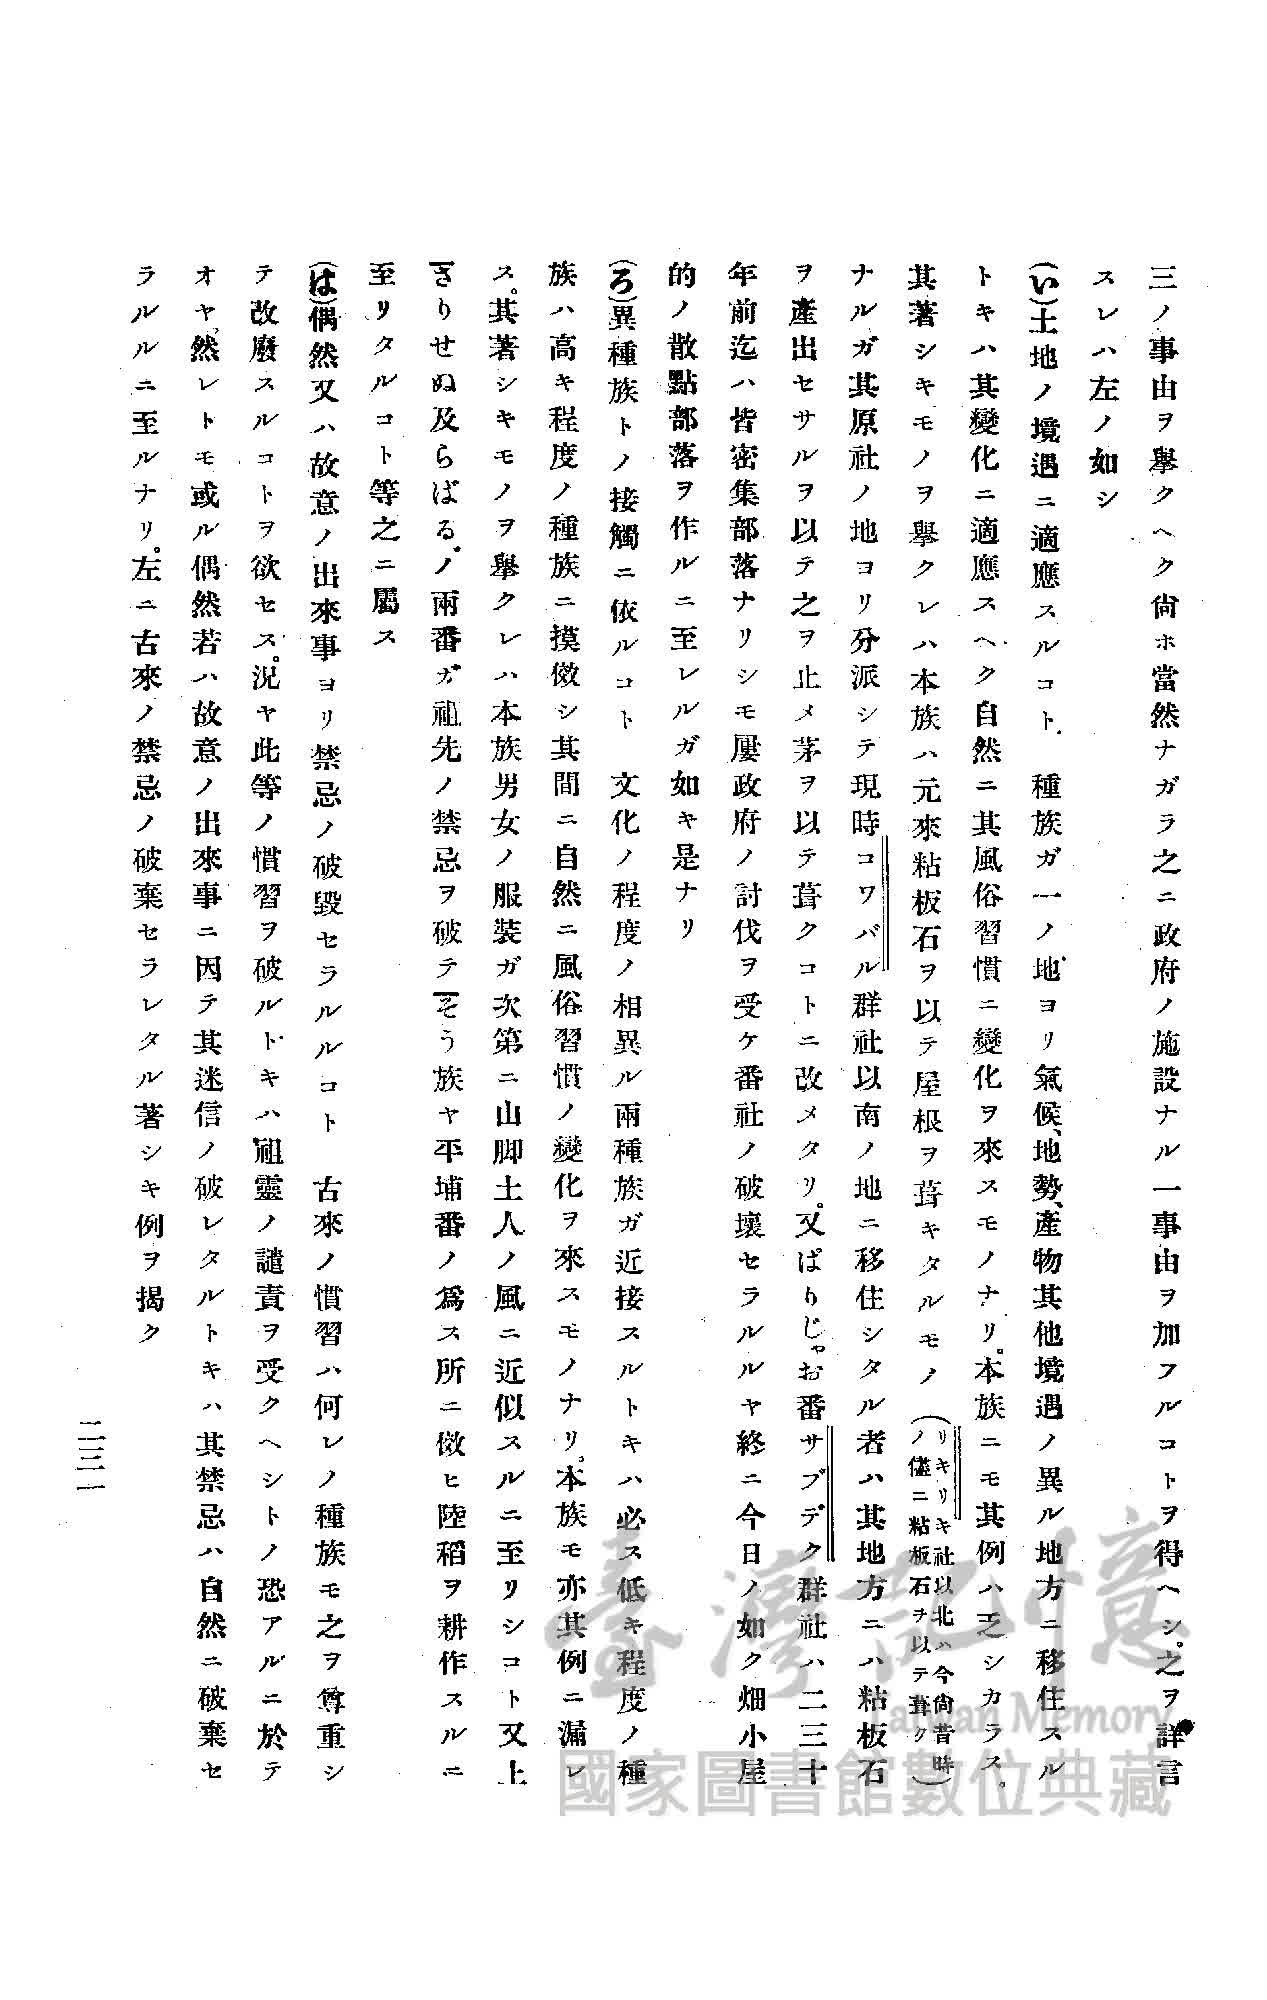 三ノ事由ヲ擧クヘク尙ホ當然ナガラ之ニ政府ノ施設ナル一事由ヲ加フルコトヲ得ヘシ。之ヲ詳言
スレハ左ノ如シ
(い)土地ノ境遇ニ適應スルコト、 種族ガ一ノ地ヨリ氣候、地勢、產物其他境遇ノ異ル地方ニ移住スル
トキハ其變化ニ適應スヘク自然ニ其風俗習慣ニ變化ヲ來スモノナリ。本族ニモ其例ハ乏シカラス。
其著シキモノヲ擧クレハ本族ハ元來粘板石ヲ以テ屋根ヲ葺キタルモノ(リキリキ社以北ハ今尙昔時ノ儘ニ粘板石ヲ以テ葺ク)
ナルガ其原社ノ地ヨリ分派シテ現時コワバル群社以南ノ地ニ移住シタル者ハ其地方ニハ粘板石
ヲ產出セサルヲ以テ之ヲ止メ茅ヲ以テ葺クコトニ改メタリ。又ぱりじゃお番サブデク群社ハ二三十
年前迄ハ皆密集部落ナリシモ屢政府ノ討伐ヲ受ケ番社ノ破壞セラルルヤ終ニ今日ノ如ク畑小屋
的ノ散點部落ヲ作ルニ至レルガ如キ是ナリ
(ろ)異種族トノ接觸ニ依ルコト 文化ノ程度ノ相異ル兩種族ガ近接スルトキハ必ス低キ程度ノ種
族ハ高キ程度ノ種族ニ摸倣シ其間ニ自然ニ風俗習慣ノ變化ヲ來スモノナリ。本族モ亦其例ニ漏レ
ス。其著シキモノヲ擧クレハ本族男女ノ服裝ガ次第ニ山脚土人ノ風ニ近似スルニ至リシコト又上
さりせぬ及らばるノ兩番ガ祖先ノ禁忌ヲ破テそう族ヤ平埔番ノ爲ス所ニ倣ヒ陸稻ヲ耕作スルニ
至リタルコト等之ニ屬ス
(は)偶然又ハ故意ノ出來事ヨリ禁忌ノ破毀セラルルコト 古來ノ慣習ハ何レノ種族モ之ヲ尊重シ
テ改廢スルコトヲ欲セス。況ヤ此等ノ慣習ヲ破ルトキハ祖靈ノ譴責ヲ受クヘシトノ恐アルニ於テ
オヤ、然レトモ或ル偶然若ハ故意ノ出來事ニ因テ其迷信ノ破レタルトキハ其禁忌ハ自然ニ破棄セ
ラルルニ至ルナリ。左ニ古來ノ禁忌ノ破棄セラレタル著シキ例ヲ揭ク
二三一
臺灣記憶
Taiwan Memory
國家圖書館數位典藏